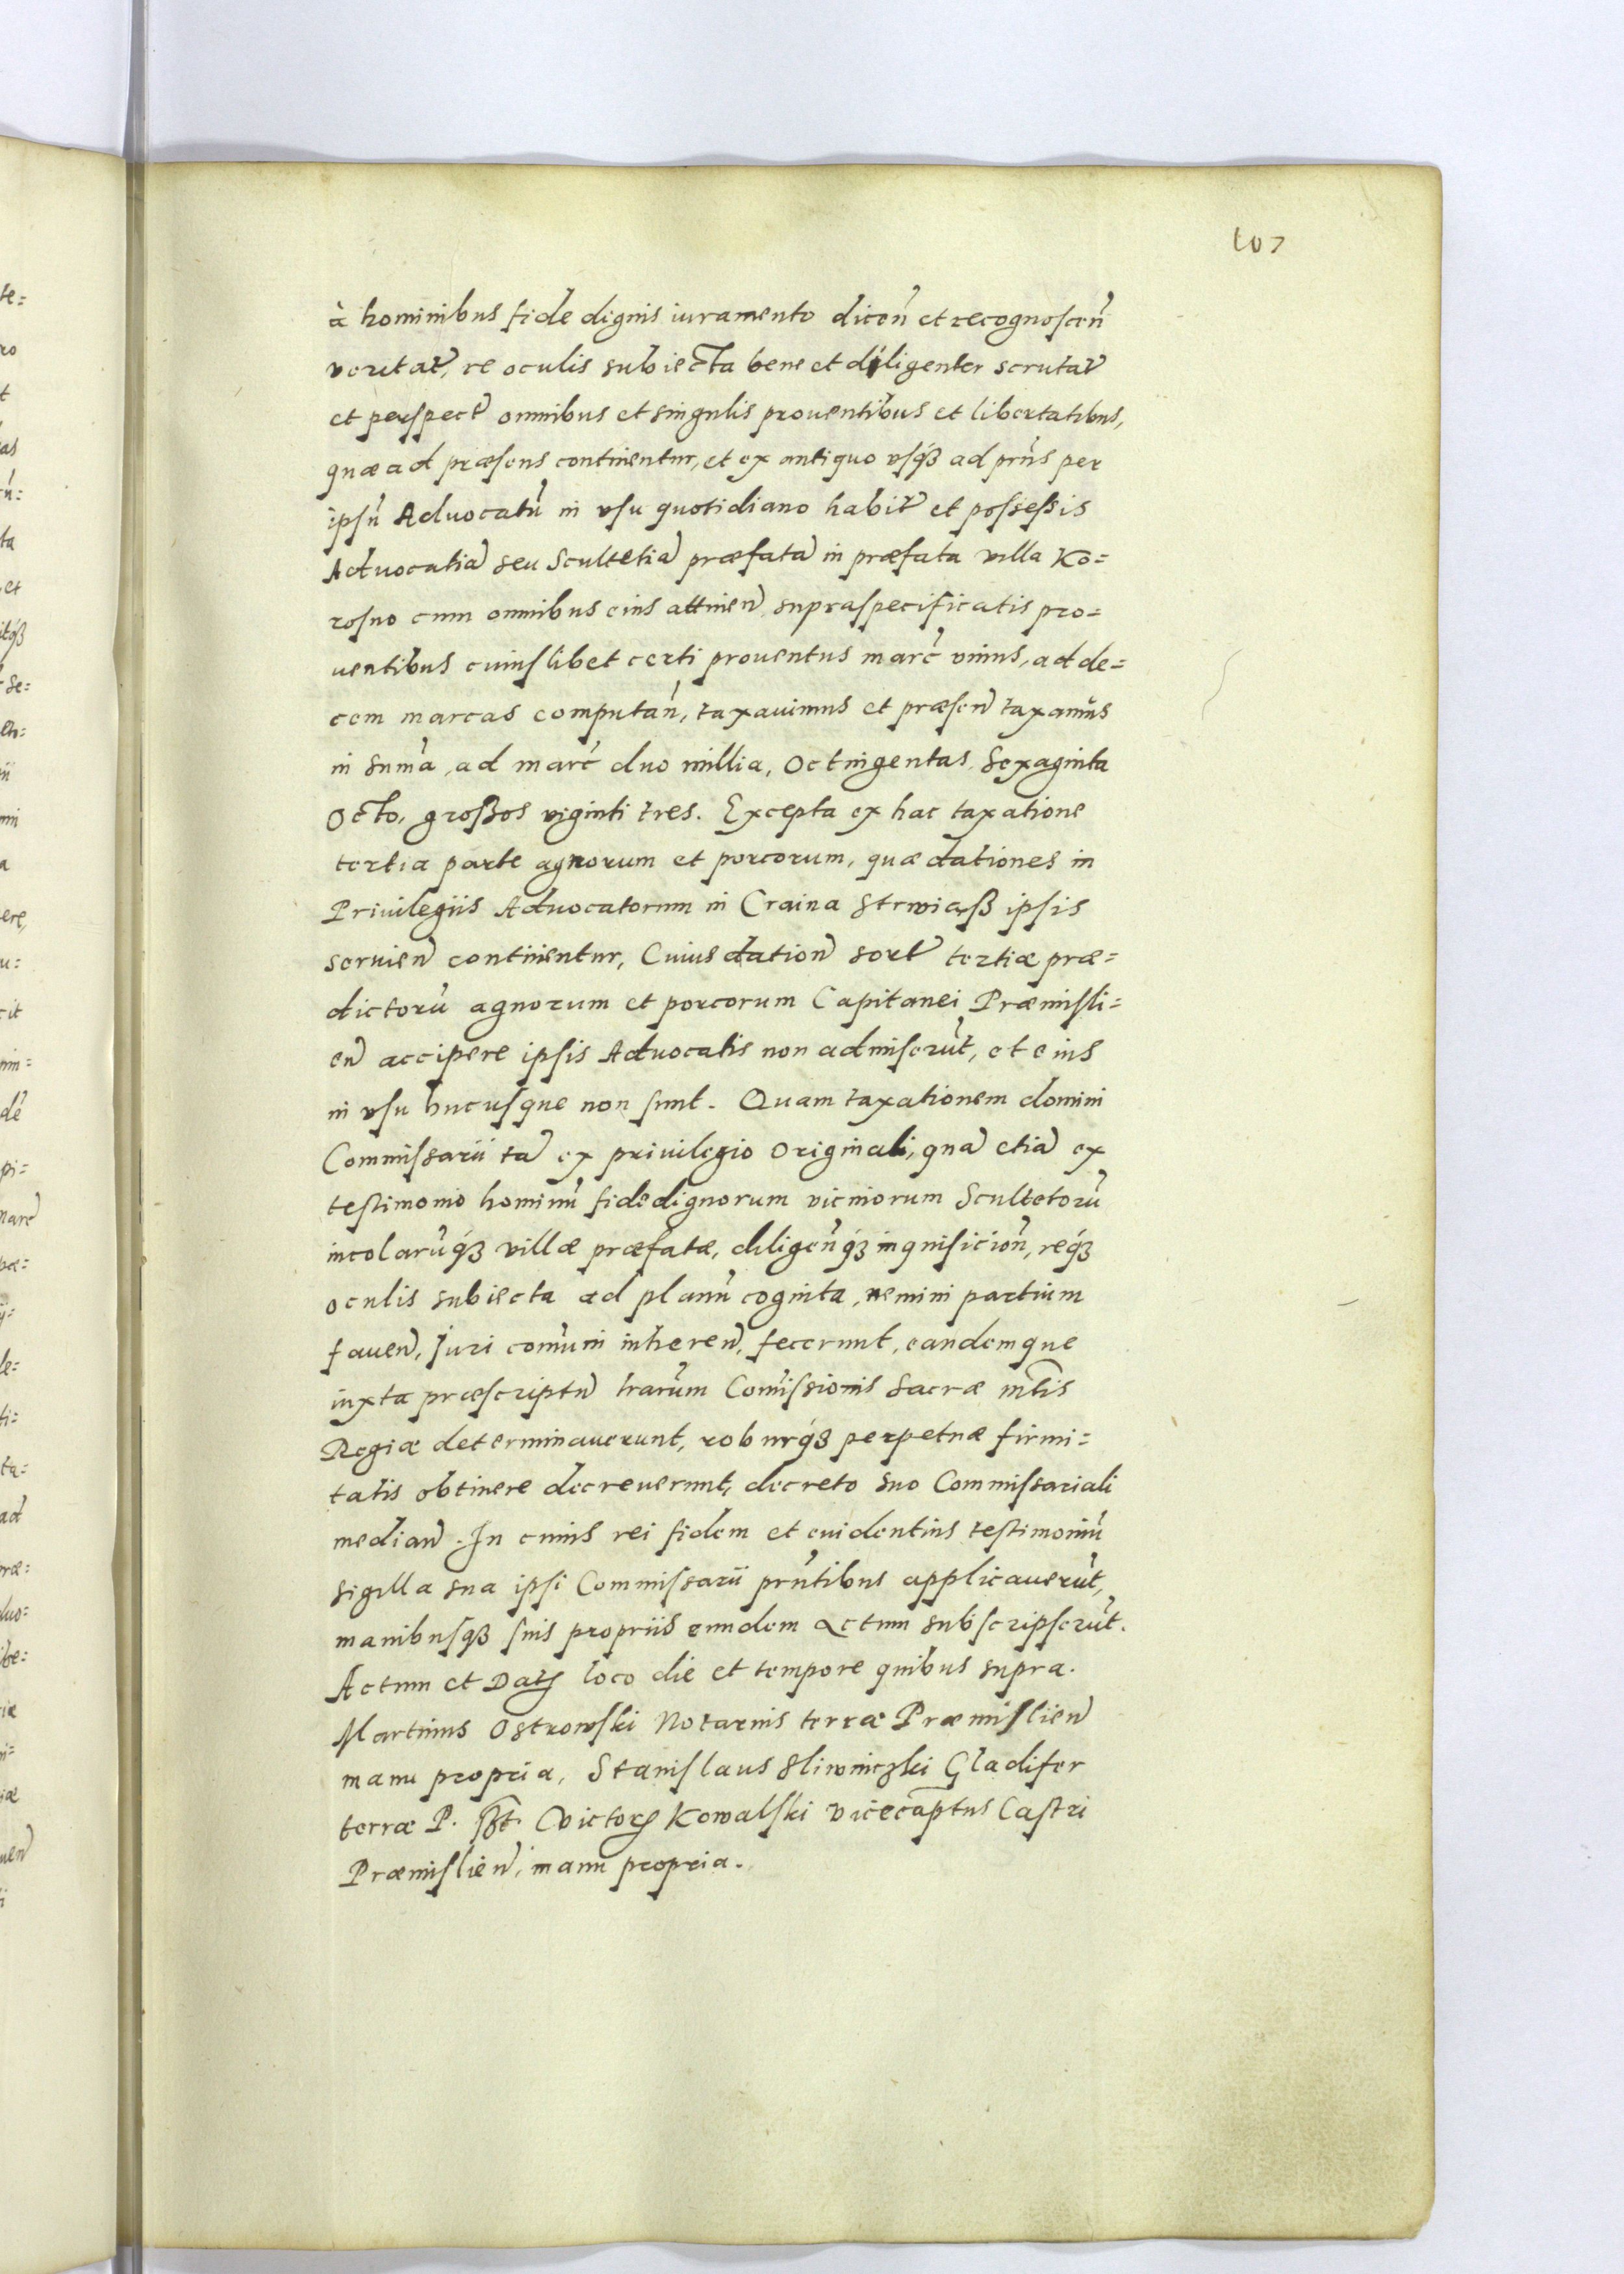 107
à hominibus fide dignis iuramento dicen̄ et recognoscen̄
veritat̄, re oculis subiecta bene et diligenter scrutat̄
et perspect̄ omnibus et singulis prouentibus et libertatibus,
quæ ad præsens continentur, et ex antiquo vsq₃ ad pr̄ns per
ipsū Aduocatū in vsu quotidiano habit̄ et possessis
Aduocatiā seu Scultetiā præfatā in præfata villa Ko=
rosno cum omnibus eius attinen̄ supraspecificatis pro=
uentibus cuiuslibet certi prouentus marc̄ vnius, ad de=
cem marcas computan̄, taxauimus et præsen̄ taxamus
in sum̄a, ad marc̄ duo millia, Octingentas, Sexaginta
Octo, großos viginti tres. Excepta ex hac taxatione
tertia parte agnorum et porcorum, quæ dationes in
Priuilegiis Aduocatorum in Craina Strwiąß ipsis
seruien̄ continentur, Cuius dation̄ sort̄ tertiæ præ=
dictorū agnorum et porcorum Capitanei Præmisli=
en̄ accipere ipsis Aduocatis non admiserūt, et eius
in vsu hucusque non sunt. Quam taxationem domini
Commissarii tā ex priuilegio Originali, quā etiā ex
testimonio hominū fidedignorum vicinorum Scultetorū
incolarūq₃ villæ præfatæ, diligen̄q₃ inquisicion̄, req₃
oculis subiecta ad planū cognita, nemini partium
fauen̄, Juri com̄uni inheren̄, fecerunt, eandemque
iuxta præscriptū l̄rarum Com̄issionis Sacræ M̄tis
Regiæ determinauerunt, roburq₃ perpetuæ firmi=
tatis obtinere decreuerunt, decreto suo Commissariali
median̄. In cuius rei fidem et euidentius testimoniū
sigilla sua ipsi Commissarii pr̄ntibus applicauerūt,
manibusq₃ suis propriis eundem Actum subscripserūt.
Actum et Datꝫ loco die et tempore quibus supra.
Martinus Ostrowski Notarius terræ Præmislien̄
manu propria, Stanislaus Sliwniczki Gladifer
terræ P. sst. Victorꝫ Kowalski vicecap̄tus Castri
Præmislien̄, manu propria.